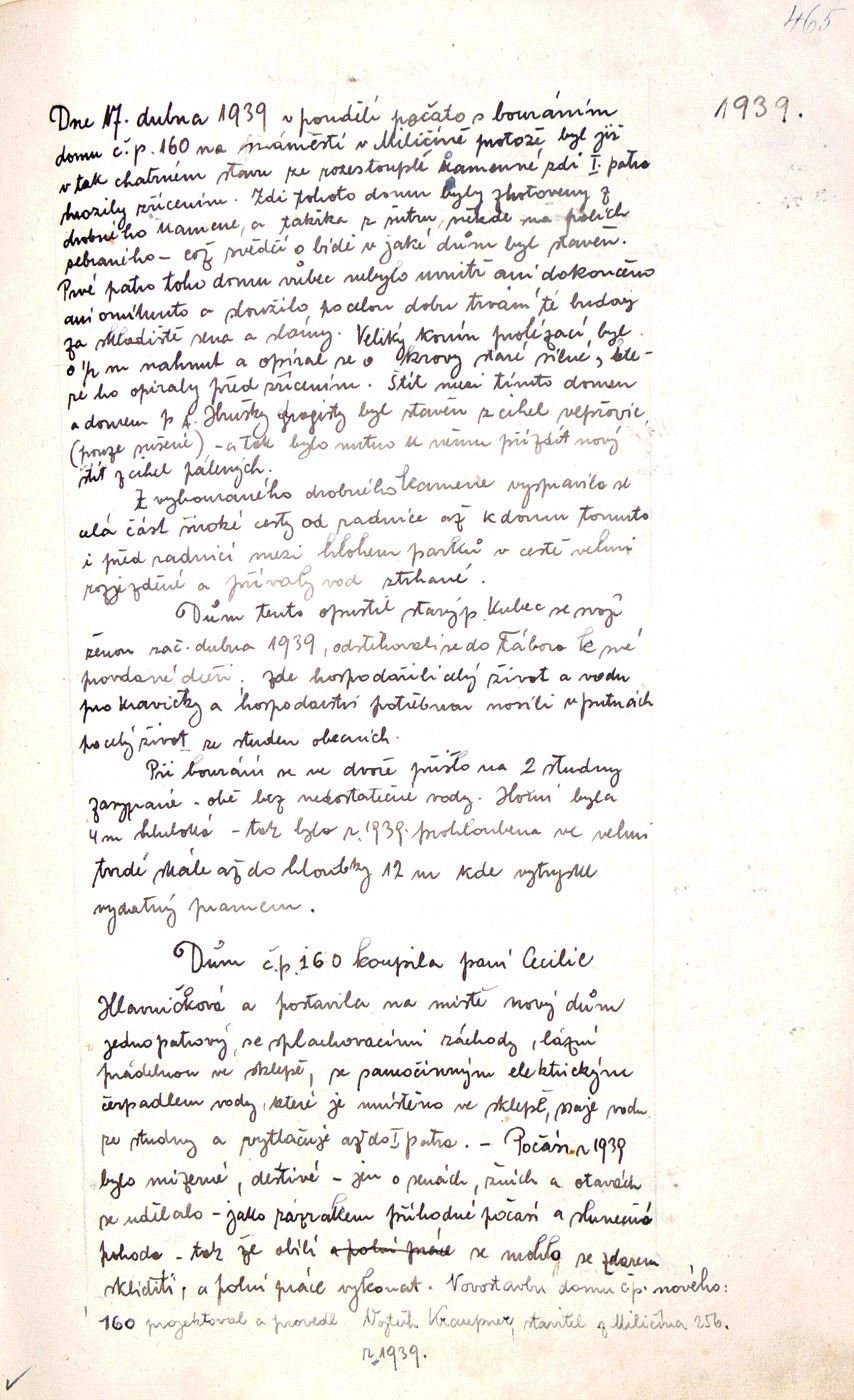 465
1939.
Dne 17. dubna 1939 v pondělí počato s bouráním
domu č.p. 160 na náměstí v Miličíně protože byl již
v tak chatrném stavu že rozestouplé kamenné zdi I. patra
hrozily zřícením. Zdi tohoto domu byly zhotoveny z
drobného kamene, a takřka z štěrku, někde na polích
sebraného - což svědčí o bídě v jaké dům byl stavěn.
Prvé patro toho domu vůbec nebylo uvnitř ani dokončeno
ani omítnuto a sloužilo po celou dobu trvání té budovy
za skladiště sena a slámy. Veliký komín prolézací byl
o ½ m nahnut a opíral se o krovy staré silné, kte-
ré ho opíraly před zřícením. Štít mezi tímto domem
a domem p. A. Hrušky drogisty byl stavěn z cihel vepřovic,
(pouze sušené) - a tak bylo nutno k němu přizdít nový
štít z cihel pálených.
Z vybouraného drobného kamene vyspravila se
celá část široké cesty od radnice až k domu tomuto
i před radnicí mezi hlohem parků v cestě velmi
rozježděné a přívaly vod strhané.
Dům tento opustil starý p. Kubec se svojí
ženou zač. dubna 1939, odstěhovali se do Tábora k své
provdané dceři. Zde hospodařili celý život a vodu
pro kravičky a hospodářství potřebnou nosili v putnách
po celý život ze studen obecních.
Při bourání se ve dvoře přišlo na 2 studny
zasypané - obě bez nedostatečné vody. Horní byla
4 m hluboká - tož byla r. 1939 prohloubena ve velmi
tvrdé skále až do hloubky 12 m kde vytryskl
vydatný pramen.
Dům č.p. 160 koupila paní Cecilie
Hlavničková a postavila na místě nový dům
jednopatrový, se splachovacími záchody, lázní
prádelnou ve sklepě, se samočinným elektrickým
čerpadlem vody, které je umístěno ve sklepě, ssaje vodu
ze studny a vytlačuje až do I patra. - Počasí r 1939
bylo mizerné, deštivé - jen o senách, žních a otavách
se udělalo - jako zázrakem příhodné počasí a slunečná
pohoda - tak že obilí a polní práce se mohlo se zdarem
skliditi, a polní práce vykonat. Novostavbu domu čp. nového:
160 projektoval a provedl Vojtěch Kraupner, stavitel z Miličína 256.
r. 1939.